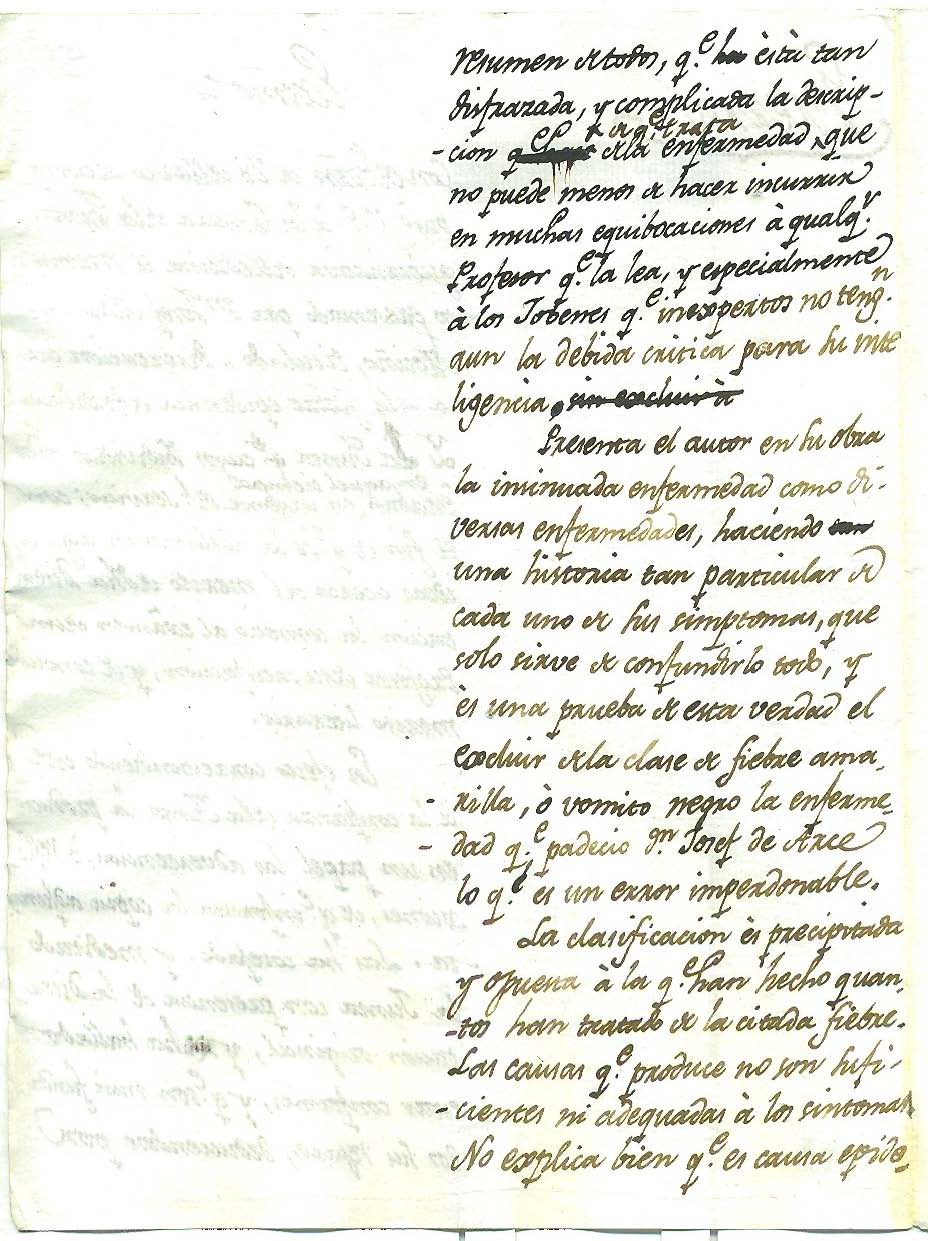 resumen de todos, q.e ha està tan
disfrazada, y complicada la descrip-
-cion q.e de la enfermedad de q.e trata, que
no puede menos de hacer incurrir
en muchas equibocaciones à qualq.r
Profesor q.e la lea, y especialmente
à los Jobenes q.e inexpertos no teng.n
aun la debida critica para su inte
ligencia, sin excluir à
Presenta el autor en su obra
la insinuada enfermedad como di-
versas enfermedades, haciendo
una historia tan particular de
cada uno de sus simptomas, que
solo sirve de confundirlo todo, y
ès una prueba de esta verdad el
excluir de la clase de fiebre ama,
-rilla, ò vomito negro la enferme,
-dad q.e padecio d.n Josef de Arce
lo q.e es un error imperdonable.
La clasificacion ès precipitada
y opuesta à la q.e han hecho quan,
-tos han tratado de la citada fiebre.
Las causas q.e produce no son sufi-
-cientes ni adequadas à los sintomas.
No explica bien q.e es causa epide,